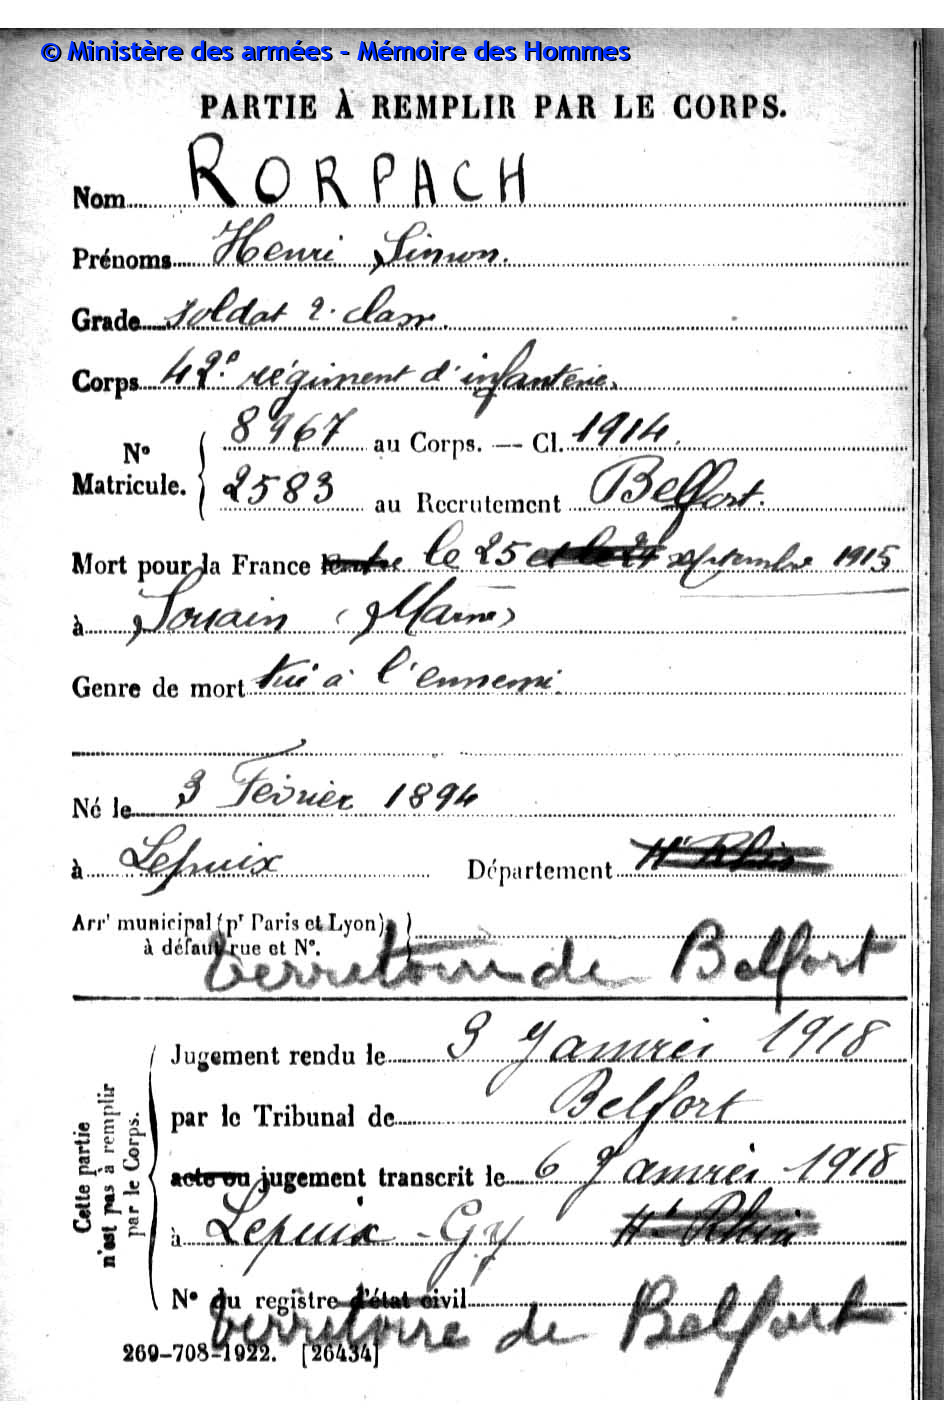 © Ministère des armées - Mémoire des Hommes
PARTIE À REMPLIR PAR LE CORPS.
Nom RORPACH
Prénoms Henri Simon.
Grade soldat 2e classe.
Corps 42e régiment d'infanterie.
8967 au Corps. — Cl. 1914.
N° Matricule.
2583 au Recrutement Belfort.
Mort pour la France le entre le 25 et le 27 septembre 1915
à Souain (Marne)
Genre de mort tué à l'ennemi.
Né le 3 Février 1894
à Lepuix Département Ht Rhin
Arrt municipal (pr Paris et Lyon),
à défaut rue et N°.
territoire de Belfort
Cette partie n'est pas à remplir par le Corps.
Jugement rendu le 3 Janvier 1918
par le Tribunal de Belfort
acte ou jugement transcrit le 6 Janvier 1918
à Lepuix-Gy Ht Rhin
N° du registre d'état civil
territoire de Belfort
269-708-1922. [26434]